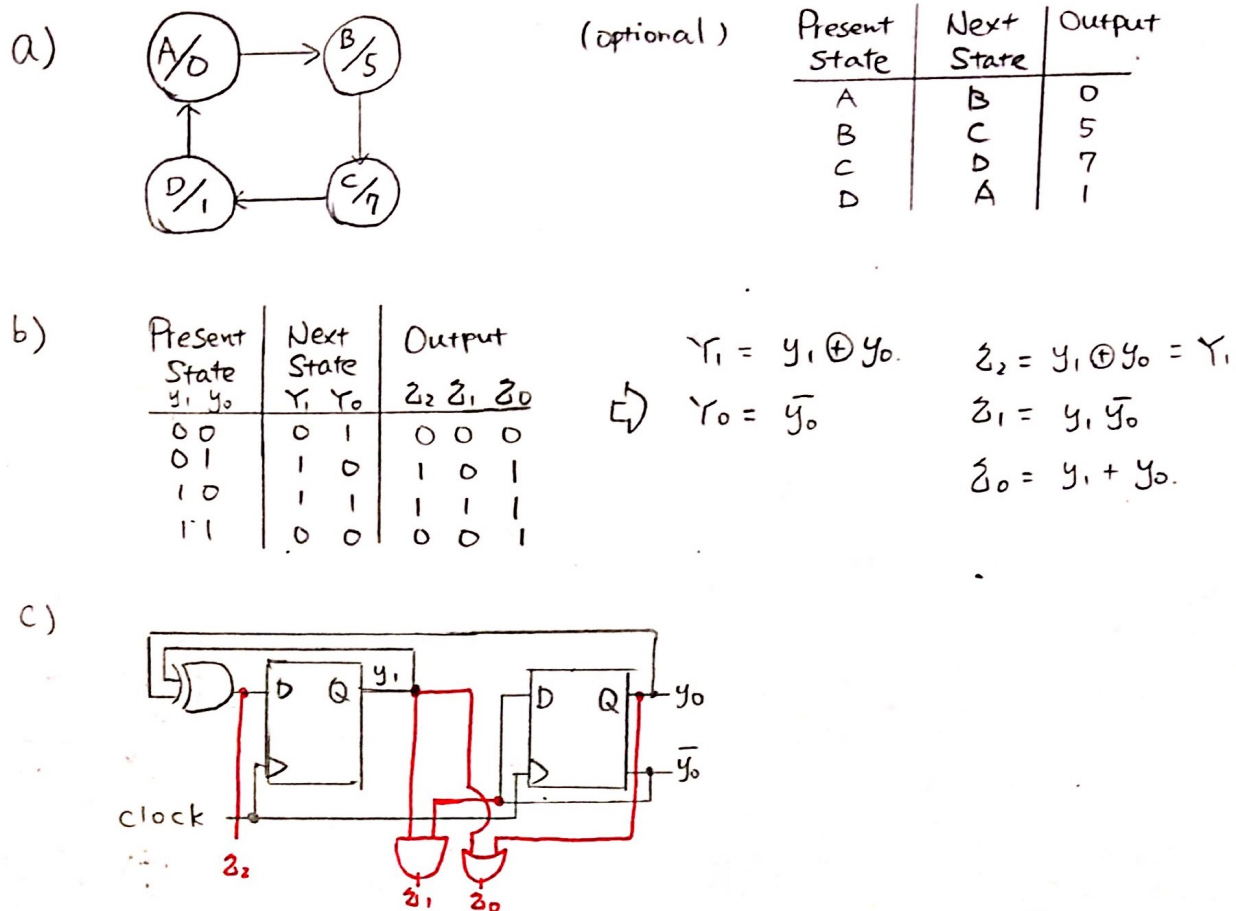 a)
A/0
B/5
D/1
C/7
(optional)
Present State | Next State | Output
A | B | 0
B | C | 5
C | D | 7
D | A | 1
b)
Present State | Next State | Output
y₁ y₀ | Y₁ Y₀ | Z₂ Z₁ Z₀
0 0 | 0 1 | 0 0 0
0 1 | 1 0 | 1 0 1
1 0 | 1 1 | 1 1 1
1 1 | 0 0 | 0 0 1
⇨
Y₁ = y₁ ⊕ y₀.
Y₀ = y̅₀
Z₂ = y₁ ⊕ y₀ = Y₁
Z₁ = y₁ y̅₀
Z₀ = y₁ + y₀.
c)
D Q y₁
D Q y₀
y̅₀
clock
Z₂
Z₁
Z₀